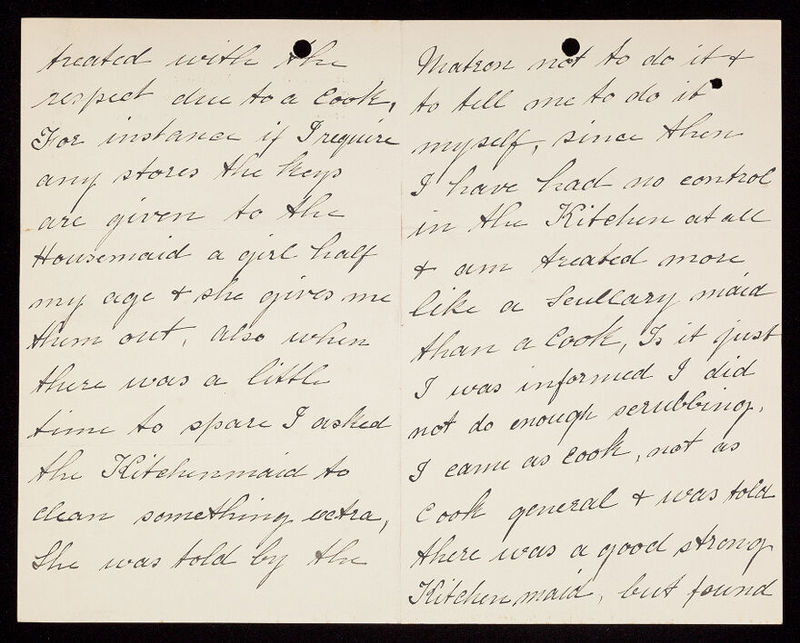 treated with the
respect due to a Cook,
For instance if I require
any stores the keys
are given to the
Housemaid a girl half
my age & she gives me
them out, also when
there was a little
time to spare I asked
the Kitchenmaid to
clean something extra,
She was told by the
Matron not to do it &
to tell me to do it
myself, since then
I have had no control
in the Kitchen at all
& am treated more
like a Scullary maid
than a Cook, Is it just
I was informed I did
not do enough scrubbing,
I came as Cook, not as
Cook general & was told
there was a good strong
Kitchenmaid, but found